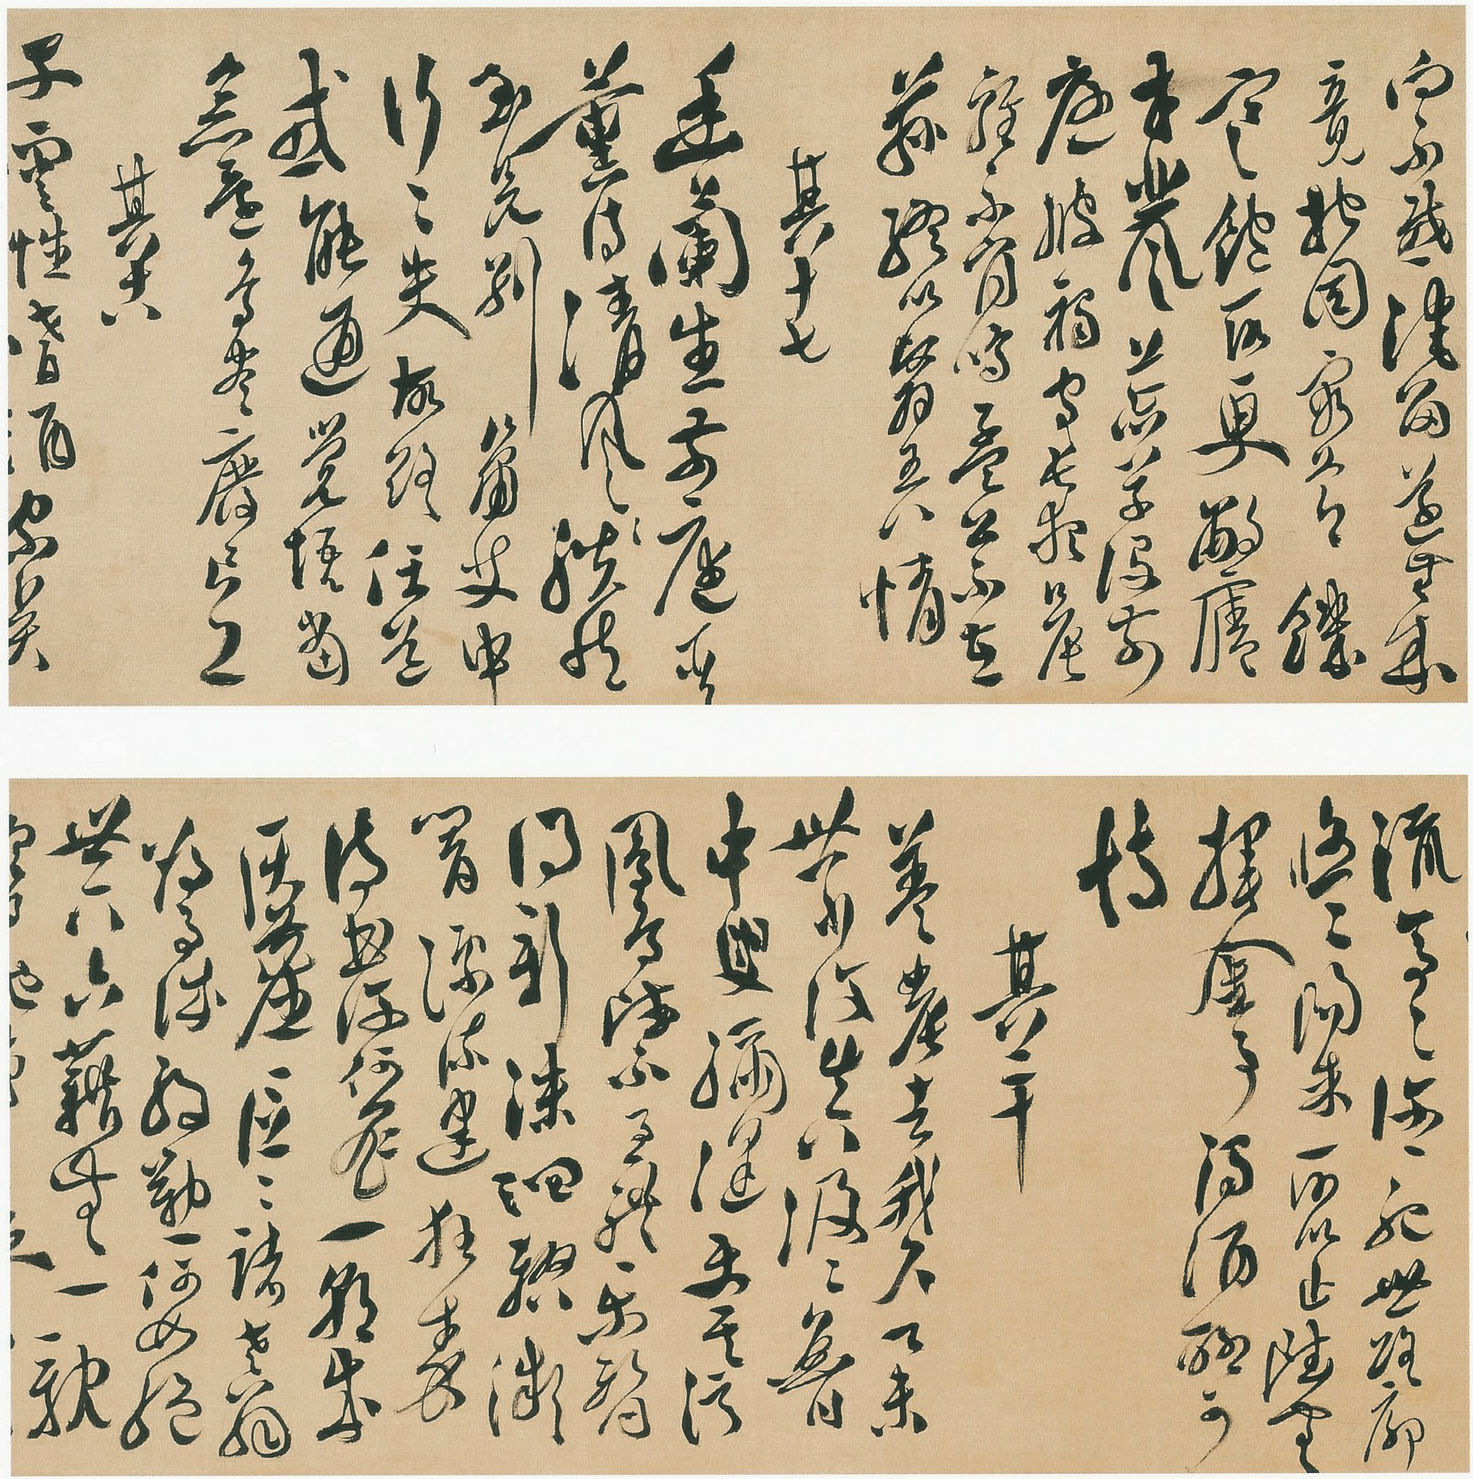 向不惑淹留遂無成
竟抱固窮節飢
寒飽所更敝廬
交悲風荒草沒前
庭披褐守長夜晨
雞不肯鳴孟公不在
茲終以翳吾情
其十七
幽蘭生前庭含
薰待清風清風脫然
至見別蕭艾中
行行失故路任道
或能通覺悟當
念還鳥盡廢良弓
其十八
子雲性嗜酒家貧
流亭亭復一紀世路廓
悠悠楊朱所以止雖無
揮金事濁酒聊可
恃
其二十
羲農去我久舉
世少復真汲汲魯
中叟彌縫使其淳
鳳鳥雖不至禮樂暫
得新洙泗輟微
響漂流逮狂秦
詩書復何罪一朝成
灰塵區區諸老翁
為事誠殷勤何如絕
世下六籍無一親